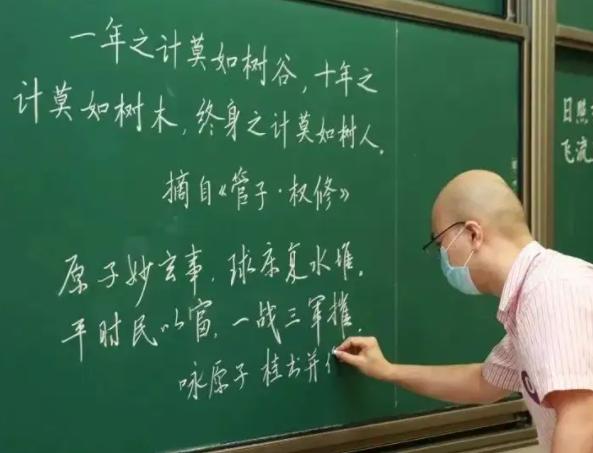 一年之计莫如树谷,十年之
计莫如树木,终身之计莫如树人。
摘自《管子·权修》
原子妙玄事,球床复水堆。
平时民以富,一战三军摧。
咏原子 桂书并
日照
飞流